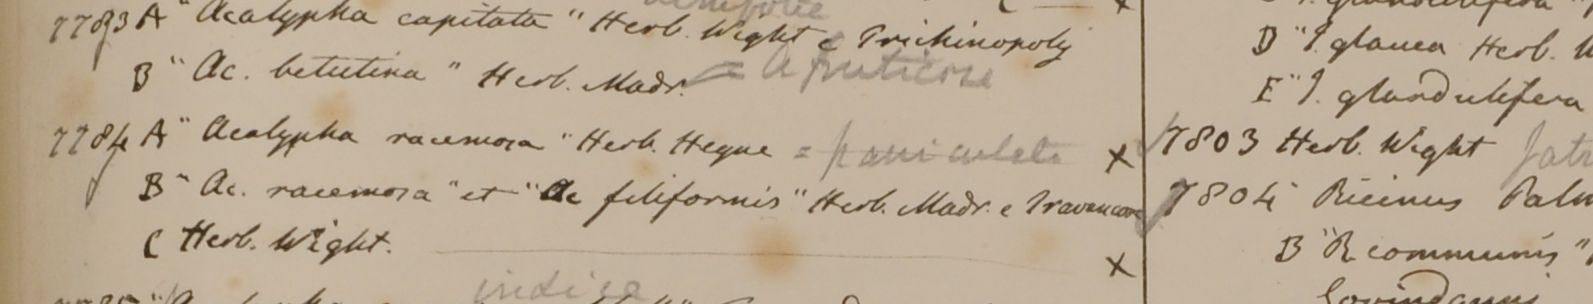 7783 A "Acalypha capitata" Herb. Wight e Trichinopoly
B "Ac. betulina" Herb. Madr. = A fruticosa
7784 A "Acalypha racemosa" Herb. Heyne = paniculata x
B "Ac. racemosa" et "Ac filiformis" Herb. Madr. e Travancore
C Herb. Wight. x
indica
D "J. glauca Herb.
E "J. glandulifera
7803 Herb. Wight
7804 Ricinus
B "R communis"